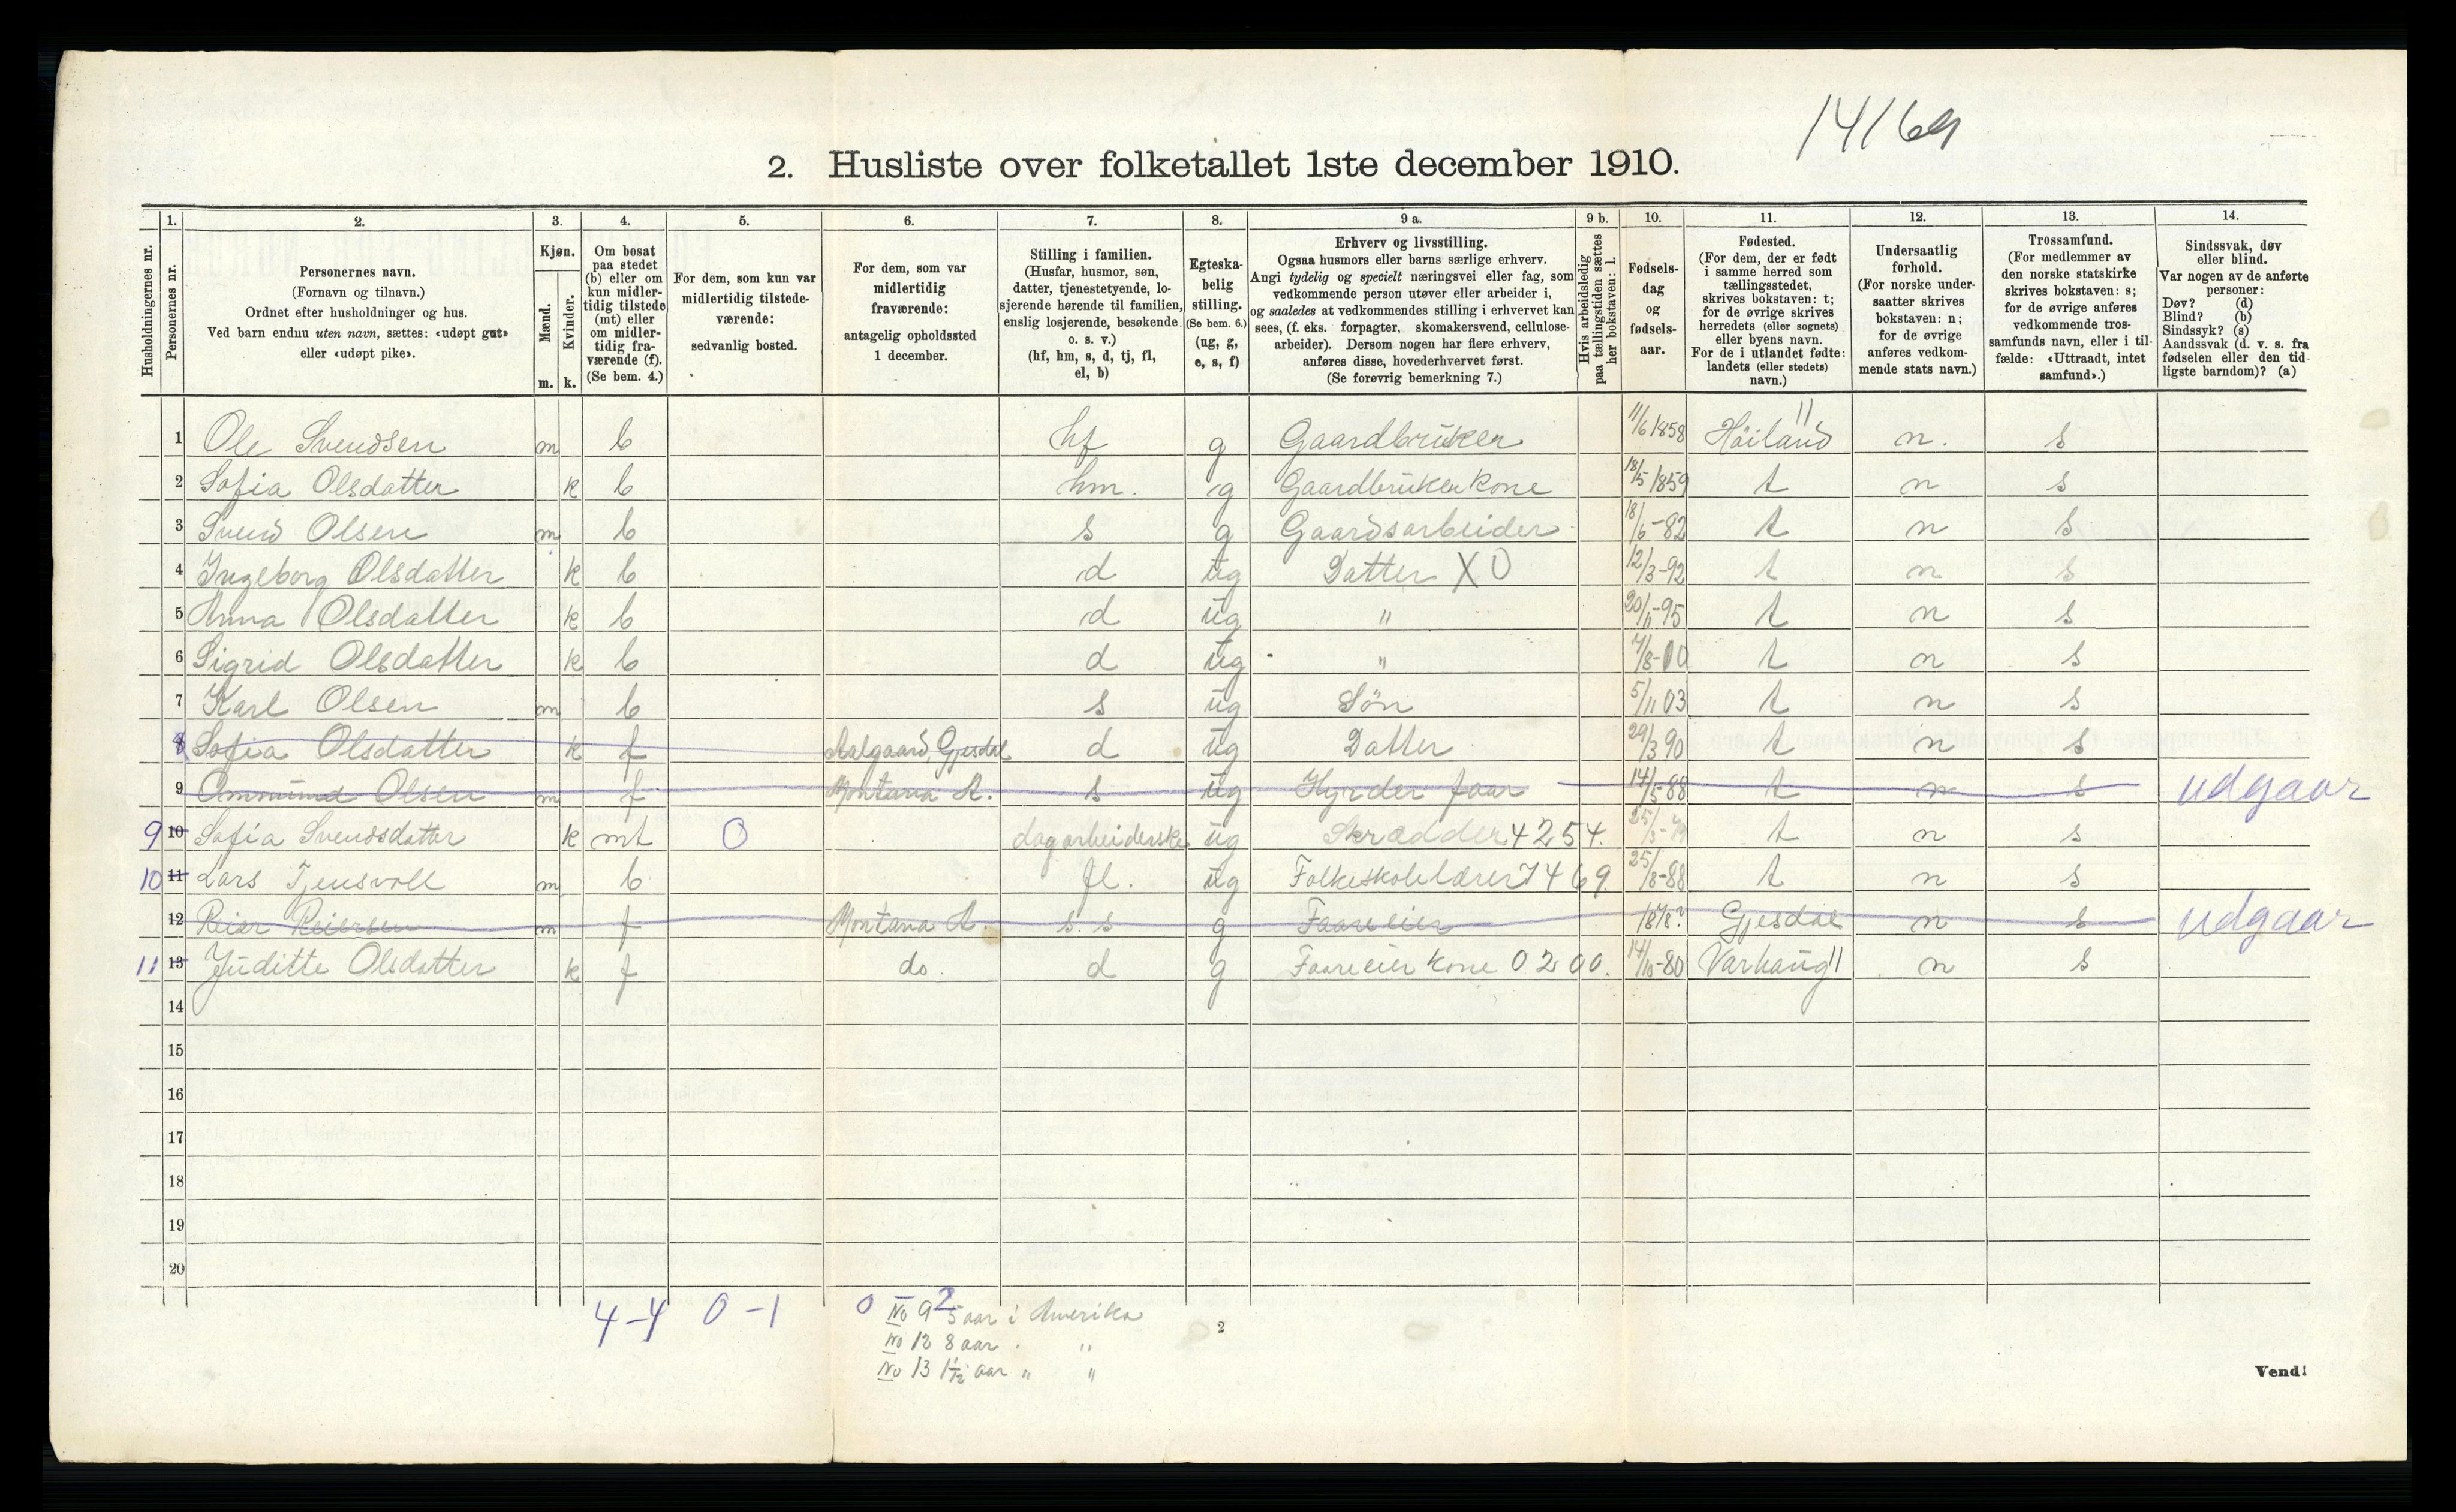 14169
2. Husliste over folketallet 1ste december 1910.
Husholdningernes nr.
1. Personernes nr.
2. Personernes navn.
(Fornavn og tilnavn.)
Ordnet efter husholdninger og hus.
Ved barn endnu uten navn, sættes: «udøpt gut»
eller «udøpt pike».
3. Kjøn.
Mænd. m.
Kvinder. k.
4. Om bosat
paa stedet
(b) eller om
kun midler-
tidig tilstede
(mt) eller
om midler-
tidig fra-
værende (f).
(Se bem. 4.)
5. For dem, som kun var
midlertidig tilstede-
værende:
sedvanlig bosted.
6. For dem, som var
midlertidig
fraværende:
antagelig opholdssted
1 december.
7. Stilling i familien.
(Husfar, husmor, søn,
datter, tjenestetyende, lo-
sjerende hørende til familien,
enslig losjerende, besøkende
o. s. v.)
(hf, hm, s, d, tj, fl,
el, b)
8. Egteska-
belig
stilling.
(Se bem. 6.)
(ug, g,
e, s, f)
9 a. Erhverv og livsstilling.
Ogsaa husmors eller barns særlige erhverv.
Angi tydelig og specielt næringsvei eller fag, som
vedkommende person utøver eller arbeider i,
og saaledes at vedkommendes stilling i erhvervet kan
sees, (f. eks. forpagter, skomakersvend, cellulose-
arbeider). Dersom nogen har flere erhverv,
anføres disse, hovederhvervet først.
(Se forøvrig bemerkning 7.)
9 b. Hvis arbeidsledig
paa tællingstiden sættes
her bokstaven: l.
10. Fødsels-
dag
og
fødsels-
aar.
11. Fødested.
(For dem, der er født
i samme herred som
tællingsstedet,
skrives bokstaven: t;
for de øvrige skrives
herredets (eller sognets)
eller byens navn.
For de i utlandet fødte:
landets (eller stedets)
navn.)
12. Undersaatlig
forhold.
(For norske under-
saatter skrives
bokstaven: n;
for de øvrige
anføres vedkom-
mende stats navn.)
13. Trossamfund.
(For medlemmer av
den norske statskirke
skrives bokstaven: s;
for de øvrige anføres
vedkommende tros-
samfunds navn, eller i til-
fælde: «Uttraadt, intet
samfund».)
14. Sindssvak, døv
eller blind.
Var nogen av de anførte
personer:
Døv? (d)
Blind? (b)
Sindssyk? (s)
Aandssvak (d. v. s. fra
fødselen eller den tid-
ligste barndom)? (a)
1 Ole Svendsen m b hf g Gaardbruker 11/6 1858 Höiland 11 n. s
2 Sofia Olsdatter k b hm. g Gaardbruker kone 18/5 1859 t n s
3 Svend Olsen m b s g Gaardsarbeider 18/6-82 t n s
4 Ingeborg Olsdatter k b d ug Datter X O 12/3-92 t n s
5 Anna Olsdatter k b d ug " 20/11-95 t n s
6 Sigrid Olsdatter k b d ug " 7/8-00 t n s
7 Karl Olsen m b s ug Sön 5/11 03 t n s
8 Sofia Olsdatter k f Aalgaard, Gjesdal d ug Datter 29/3 90 t n s
9 Ommund Olsen m f Montana A. s ug Hyrder faar 14/5-88 t n s udgaar
9 10 Sofia Svendsdatter k mt O dagarbeiderske ug Skrædder 4254. t n s
10 11 Lars Tjensvoll m b fl. ug Folkeskolelærer 7469. 25/8-88 t n s
12 Reier Reiersen m f Montana A. s. s g Faareeier 1878? Gjesdal n s udgaar
11 13 Juditte Olsdatter k f do. d g Faareeier kone 0200. 14/10-80 Varhaug 11 n s
14
15
16
17
18
19
20
4-4 0-1 0 2
No 9 5 aar i Amerika
No 12 8 aar . "
No 13 1 1/2 aar " "
2
Vend!